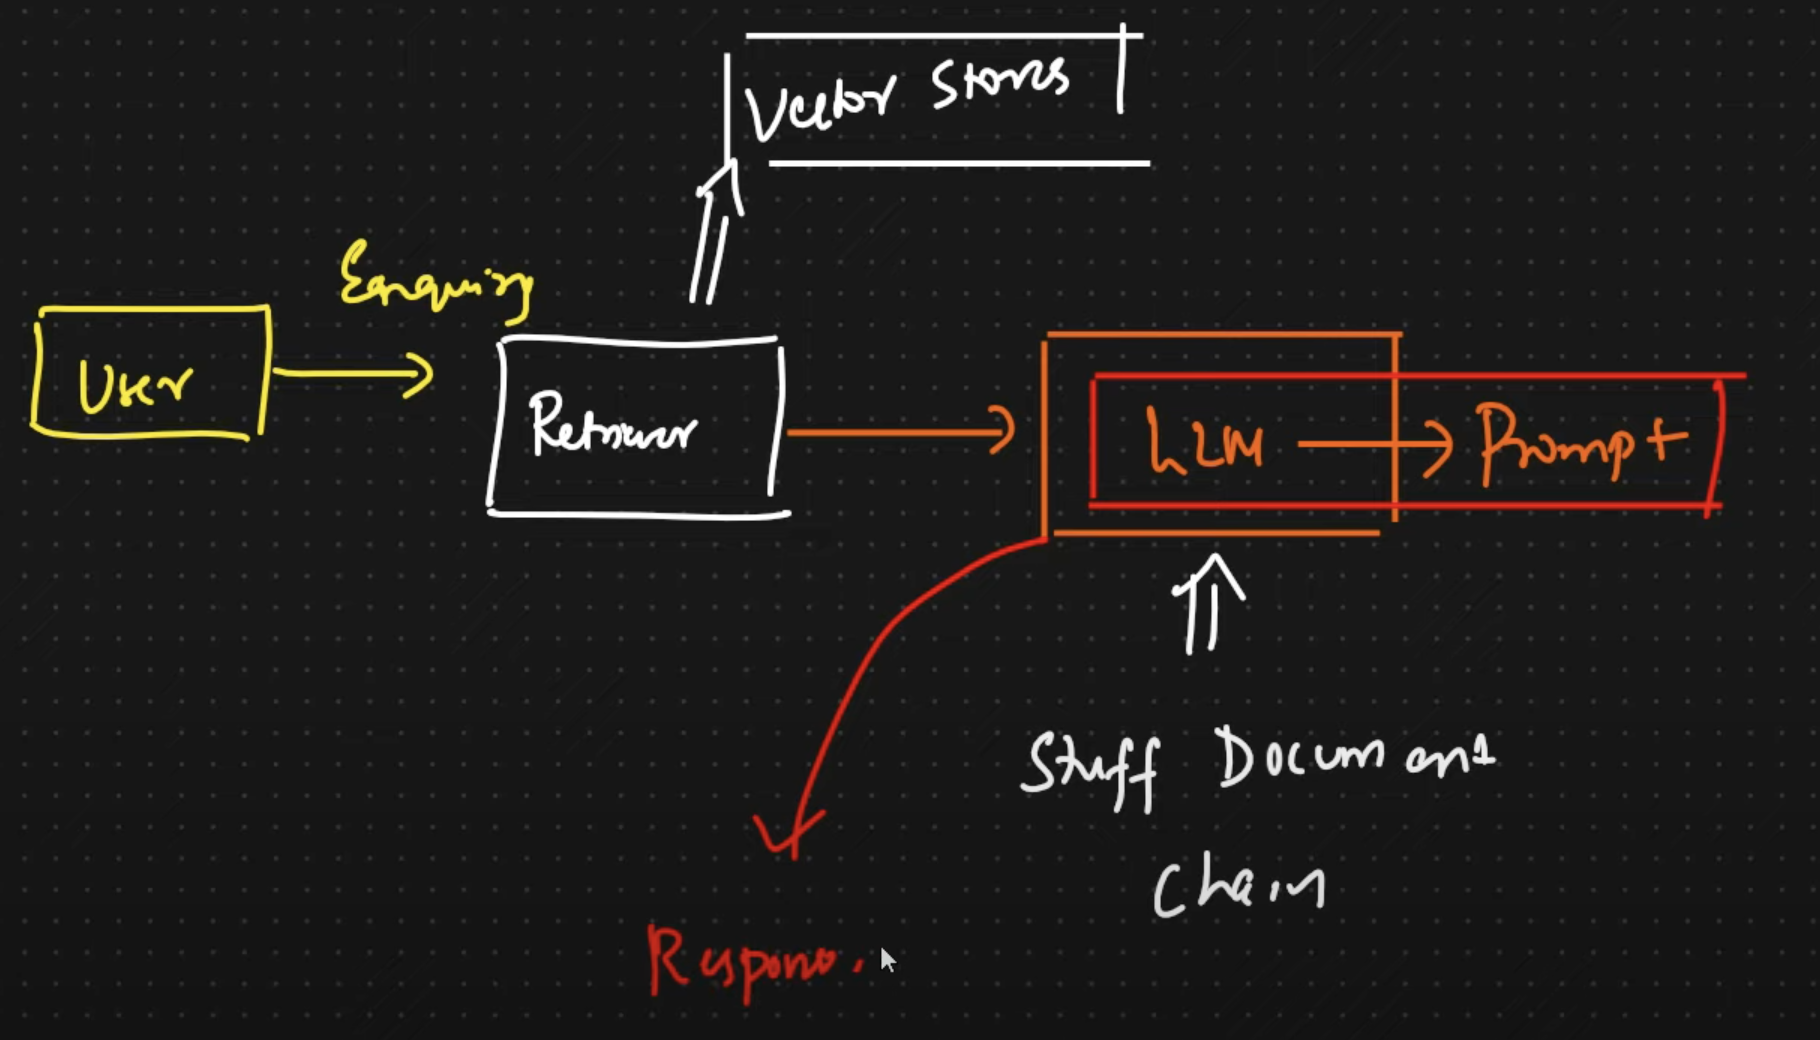 Vector Stores
Enquiry
User
Retriever
LLM → Prompt
Stuff Document
Chain
Response.